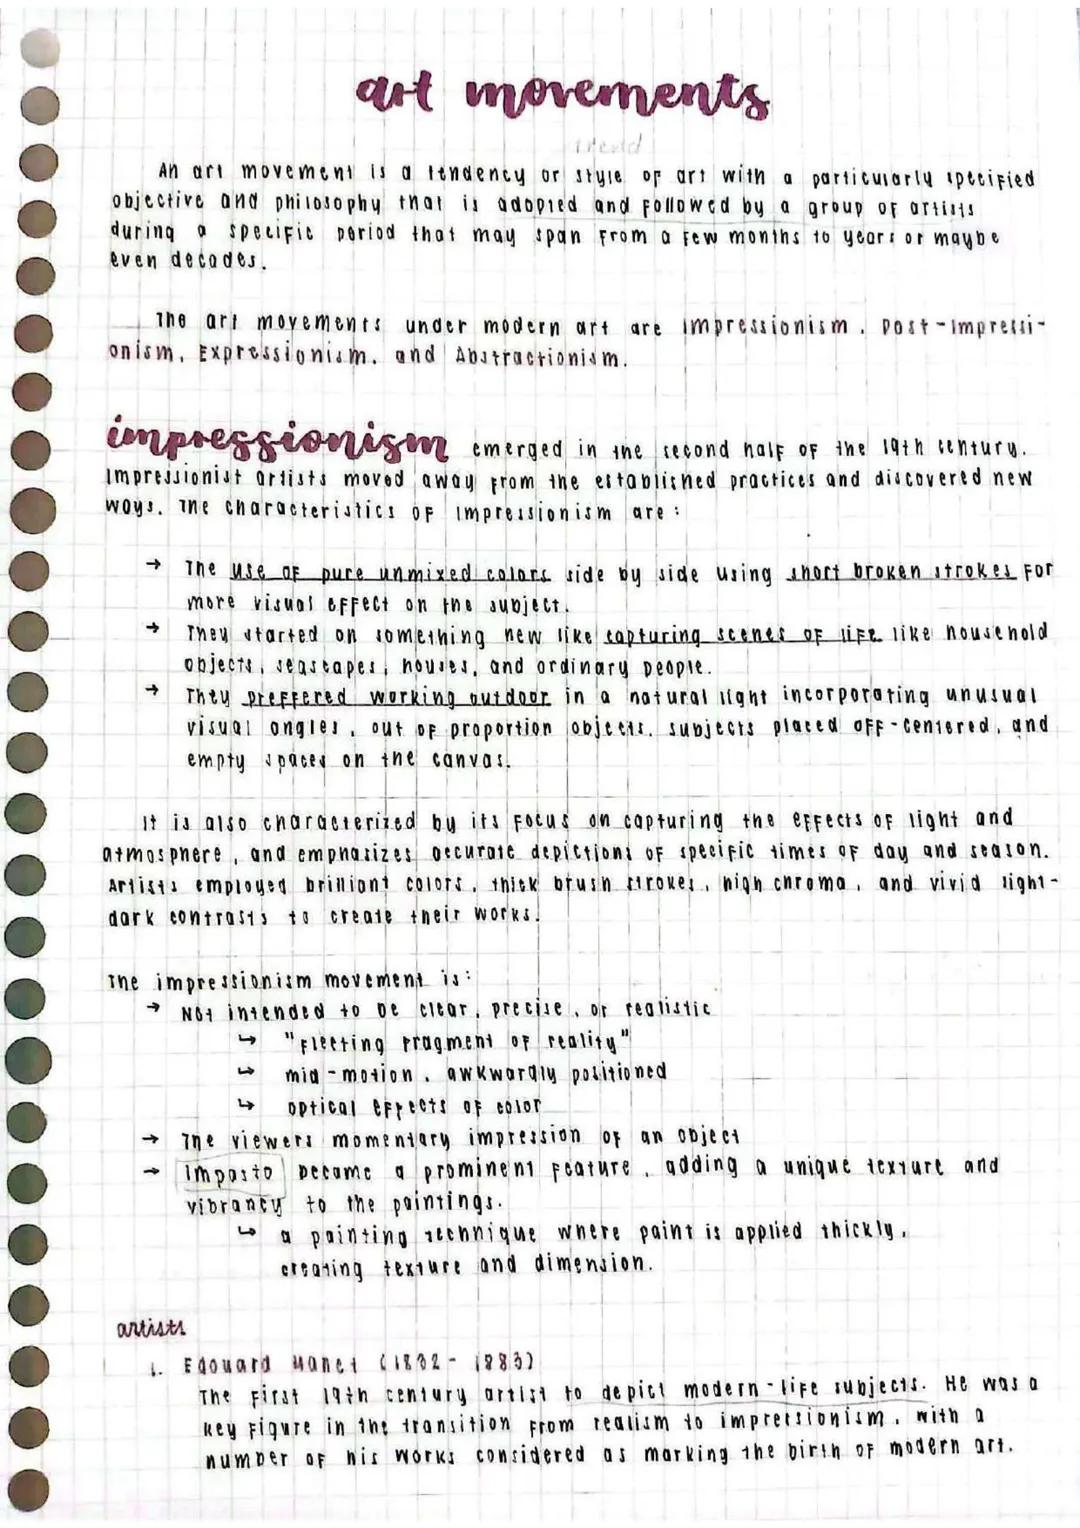 art movements
trend
An art movement is a tendency or style of art with a particularly specified
objective and philosophy that is adopted and followed by a group of artists
during a specific period that may span from a few months to years or maybe
even decades.
The art movements under modern art are Impressionism, Post-Impressi-
onism, Expressionism, and Abstractionism.
impressionism emerged in the second half of the 19th century.
Impressionist artists moved away from the established practices and discovered new
ways. The characteristics of Impressionism are:
→ The use of pure unmixed colors side by side using short broken strokes for
more visual effect on the subject.
→ They started on something new like capturing scenes of life like household
objects, seascapes, houses, and ordinary people.
→ They preffered working outdoor in a natural light incorporating unusual
visual angles, out of proportion objects, subjects placed off-centered, and
empty spaces on the canvas.
It is also characterized by its focus on capturing the effects of light and
atmosphere, and emphasizes accurate depictions of specific times of day and season.
Artists employed brilliant colors, thick brush strokes, high chroma, and vivid light-
dark contrasts to create their works.
The impressionism movement is:
→ Not intended to be clear, precise, or realistic
↳ "fleeting fragment of reality"
↳ mid-motion, awkwardly positioned
↳ optical effects of color
→ The viewers momentary impression of an object
→ Impasto became a prominent feature, adding a unique texture and
vibrancy to the paintings.
↳ a painting technique where paint is applied thickly,
creating texture and dimension.
artists
1. Edouard Manet (1832-1883)
The first 19th century artist to depict modern-life subjects. He was a
key figure in the transition from realism to impressionism, with a
number of his works considered as marking the birth of modern art.